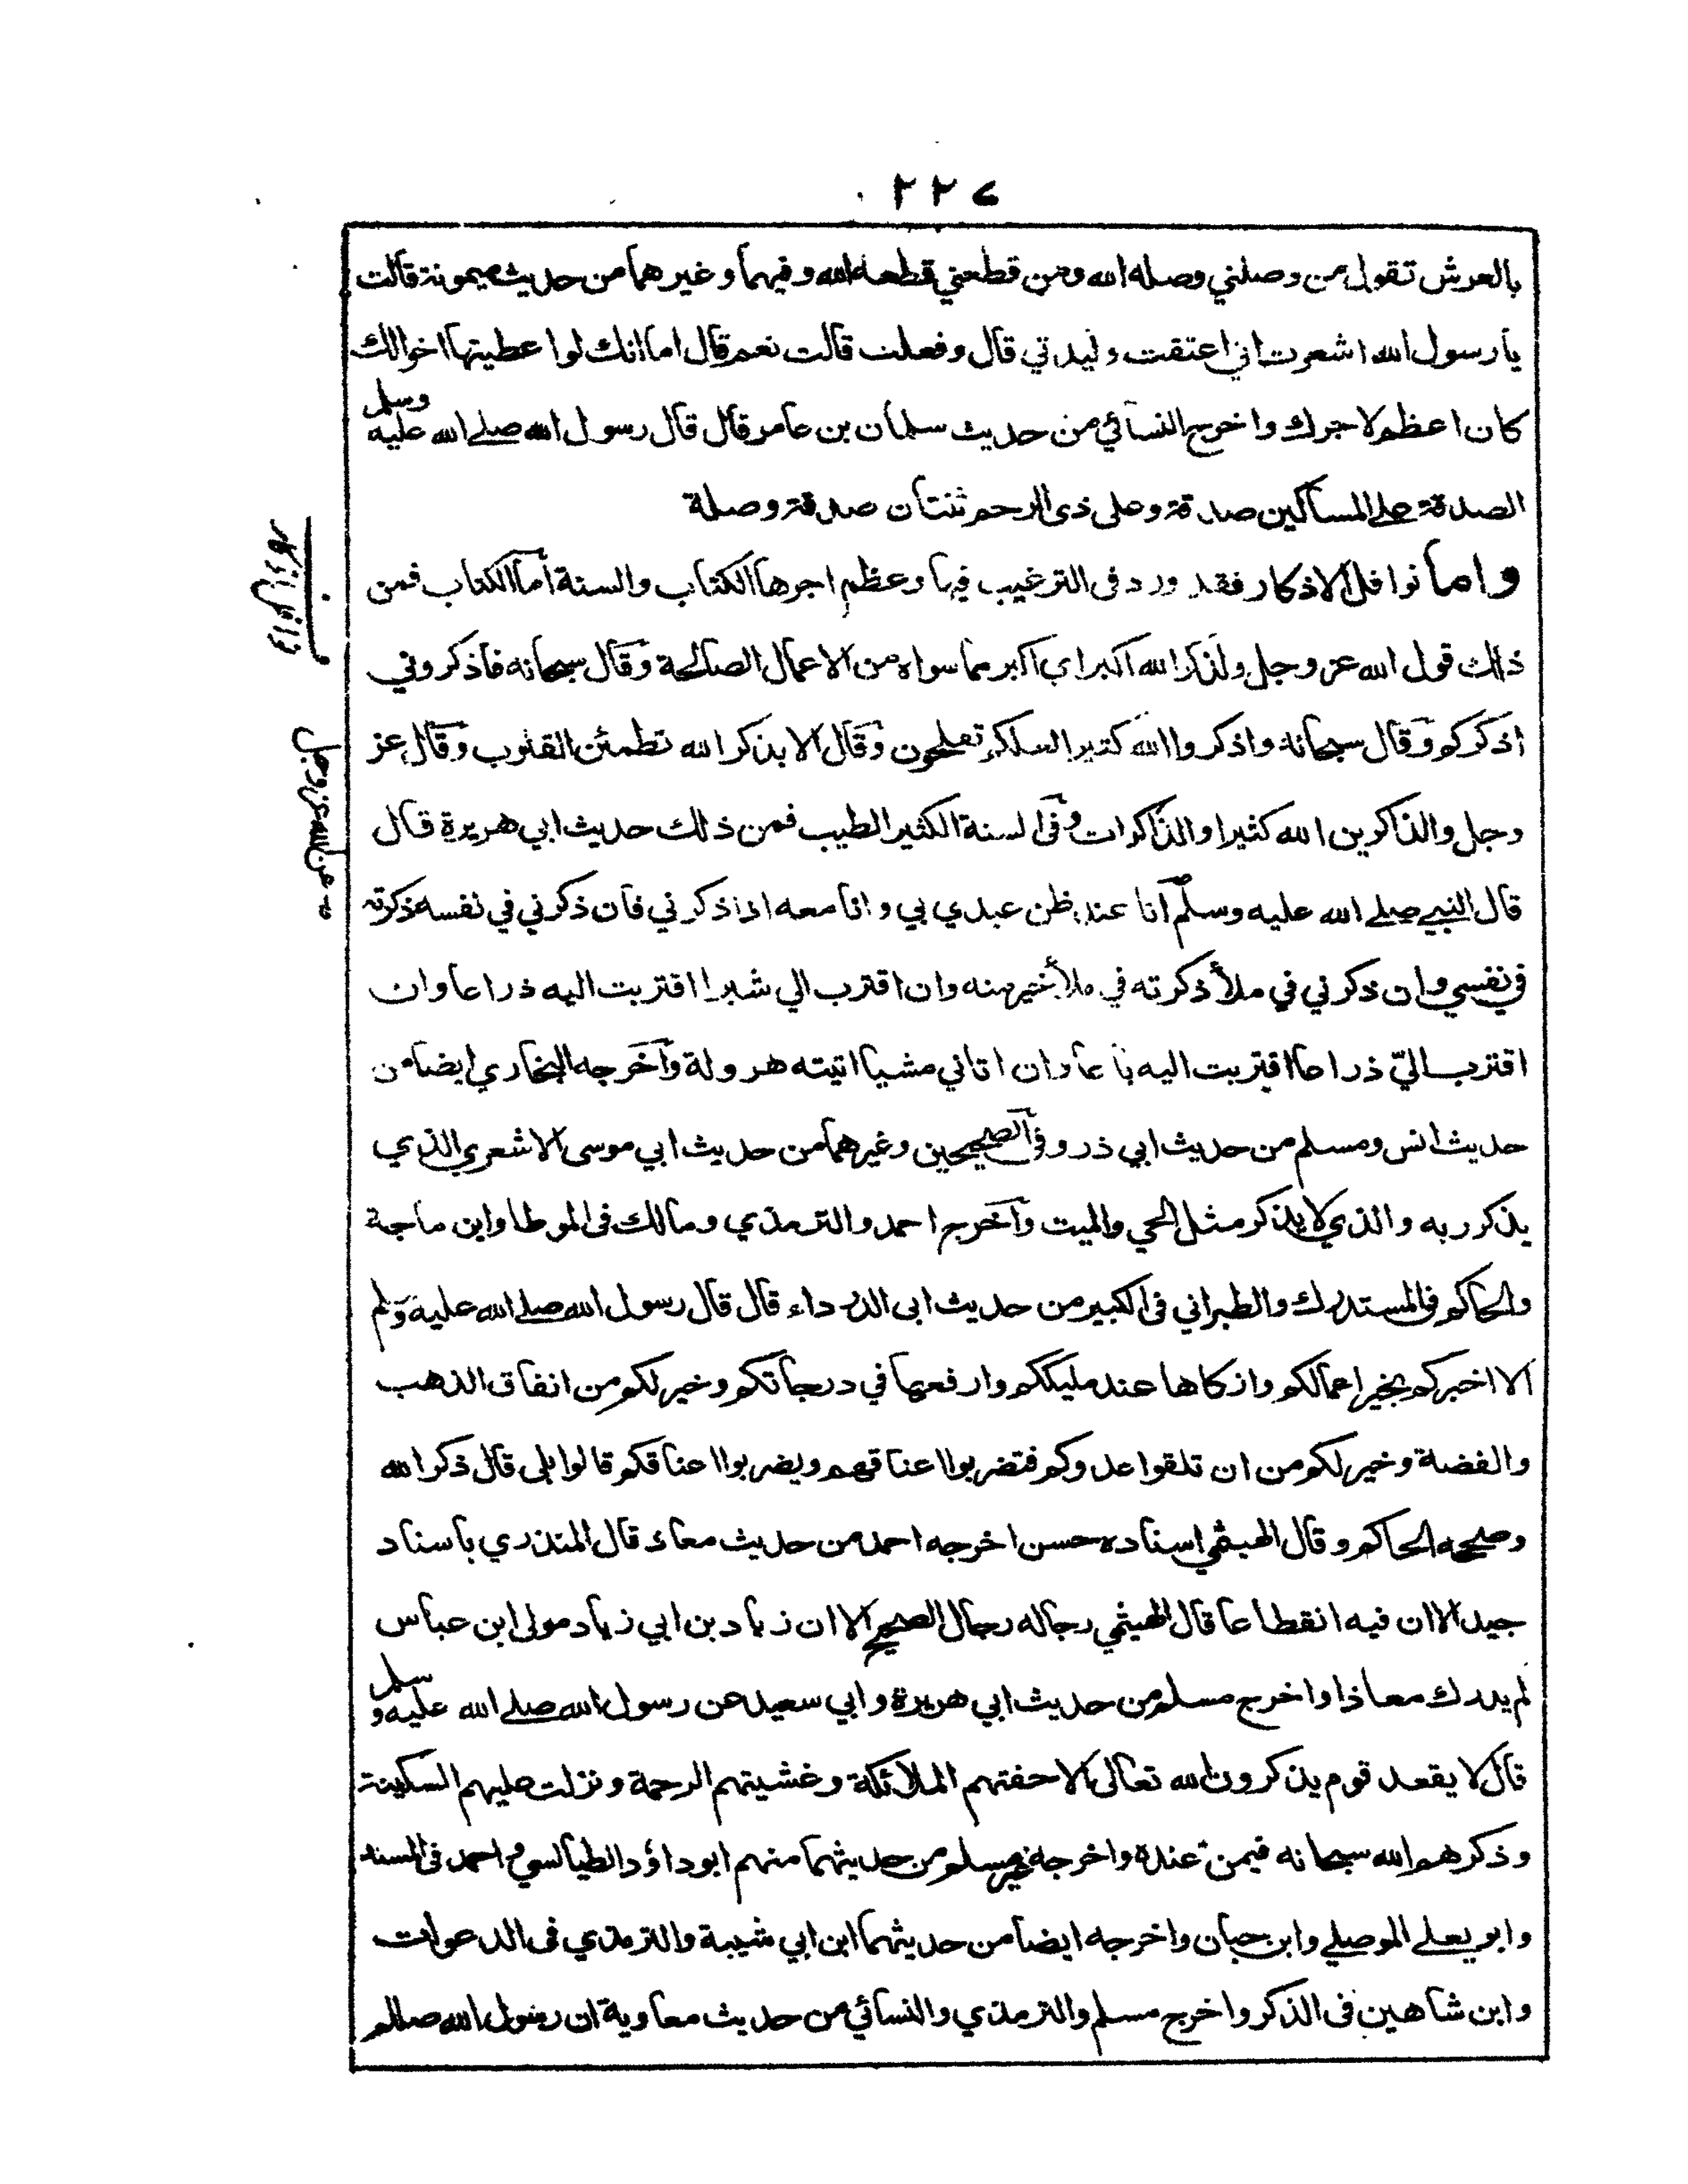 ٢٢٧
بالعرش تقول من وصلني وصله الله ومن قطعني قطعه الله وفيهما وغيرهما من حديث ميمونة قالت
يا رسول الله اشعرت اني اعتقت وليدتي قال وفعلت قالت نعم قال اما انك لو اعطيتها اخوالك
كان اعظم لاجرك واخرج النسائي من حديث سلمان بن عامر قال قال رسول الله صلى الله عليه وسلم
الصدقة على المساكين صدقة وعلى ذى الرحم ثنتان صدقة وصلة
واما نوافل الاذكار فقد ورد فى الترغيب فيها وعظم اجرها الكتاب والسنة أما الكتاب فمن
ذلك قول الله عز وجل ولذكر الله اكبر اي اكبر مما سواه من الاعمال الصالحة وقال سبحانه فاذكروني
اذكركم وقال سبحانه واذكروا الله كثيرا لعلكم تفلحون وقال الا بذكر الله تطمئن القلوب وقال عز
وجل والذاكرين الله كثيرا والذاكرات وفى السنة الكثير الطيب فمن ذلك حديث ابي هريرة قال
قال النبي صلى الله عليه وسلم انا عند ظن عبدي بي وانا معه اذا ذكرني فان ذكرني في نفسه ذكرته
في نفسي وان ذكرني في ملأ ذكرته في ملأ خير منه وان اقترب الي شبرا اقتربت اليه ذراعا وان
اقترب اليّ ذراعا اقتربت اليه باعا وان اتاني مشيا اتيته هرولة وآخرجه البخاري ايضا من
حديث انس ومسلم من حديث ابي ذر وفى الصحيحين وغيرهما من حديث ابي موسى الاشعري الذي
يذكر ربه والذي لا يذكر مثل الحي والميت وآخرج احمد والترمذي ومالك فى الموطا وابن ماجة
والحاكم فى المستدرك والطبراني فى الكبير من حديث ابى الدرداء قال قال رسول الله صلى الله عليه وسلم
الا اخبركم بخير اعمالكم وازكاها عند مليككم وارفعها في درجاتكم وخير لكم من انفاق الذهب
والفضة وخير لكم من ان تلقوا عدوكم فتضربوا اعناقهم ويضربوا اعناقكم قالوا بلى قال ذكر الله
وصححه الحاكم وقال الهيثمي اسناده حسن اخرجه احمد من حديث معاذ قال المنذري باسناد
جيد الا ان فيه انقطاعا قال الهيثمي رجاله رجال الصحيح الا ان زياد بن ابي زياد مولى ابن عباس
لم يدرك معاذا واخرج مسلم من حديث ابي هريرة وابي سعيد عن رسول الله صلى الله عليه وسلم
قال لا يقعد قوم يذكرون الله تعالى الا حفتهم الملائكة وغشيتهم الرحمة ونزلت عليهم السكينة
وذكرهم الله سبحانه فيمن عنده واخرجه غير مسلم من حديثهما منهم ابوداؤد الطيالسي واحمد فى المسند
وابو يعلى الموصلي وابن حبان واخرجه ايضا من حديثهما ابن ابي شيبة والترمذي فى الدعوات
وابن شاهين فى الذكر واخرج مسلم والترمذي والنسائي من حديث معاوية ان رسول الله صللم
نوافل اذكار
عن الله عز وجل